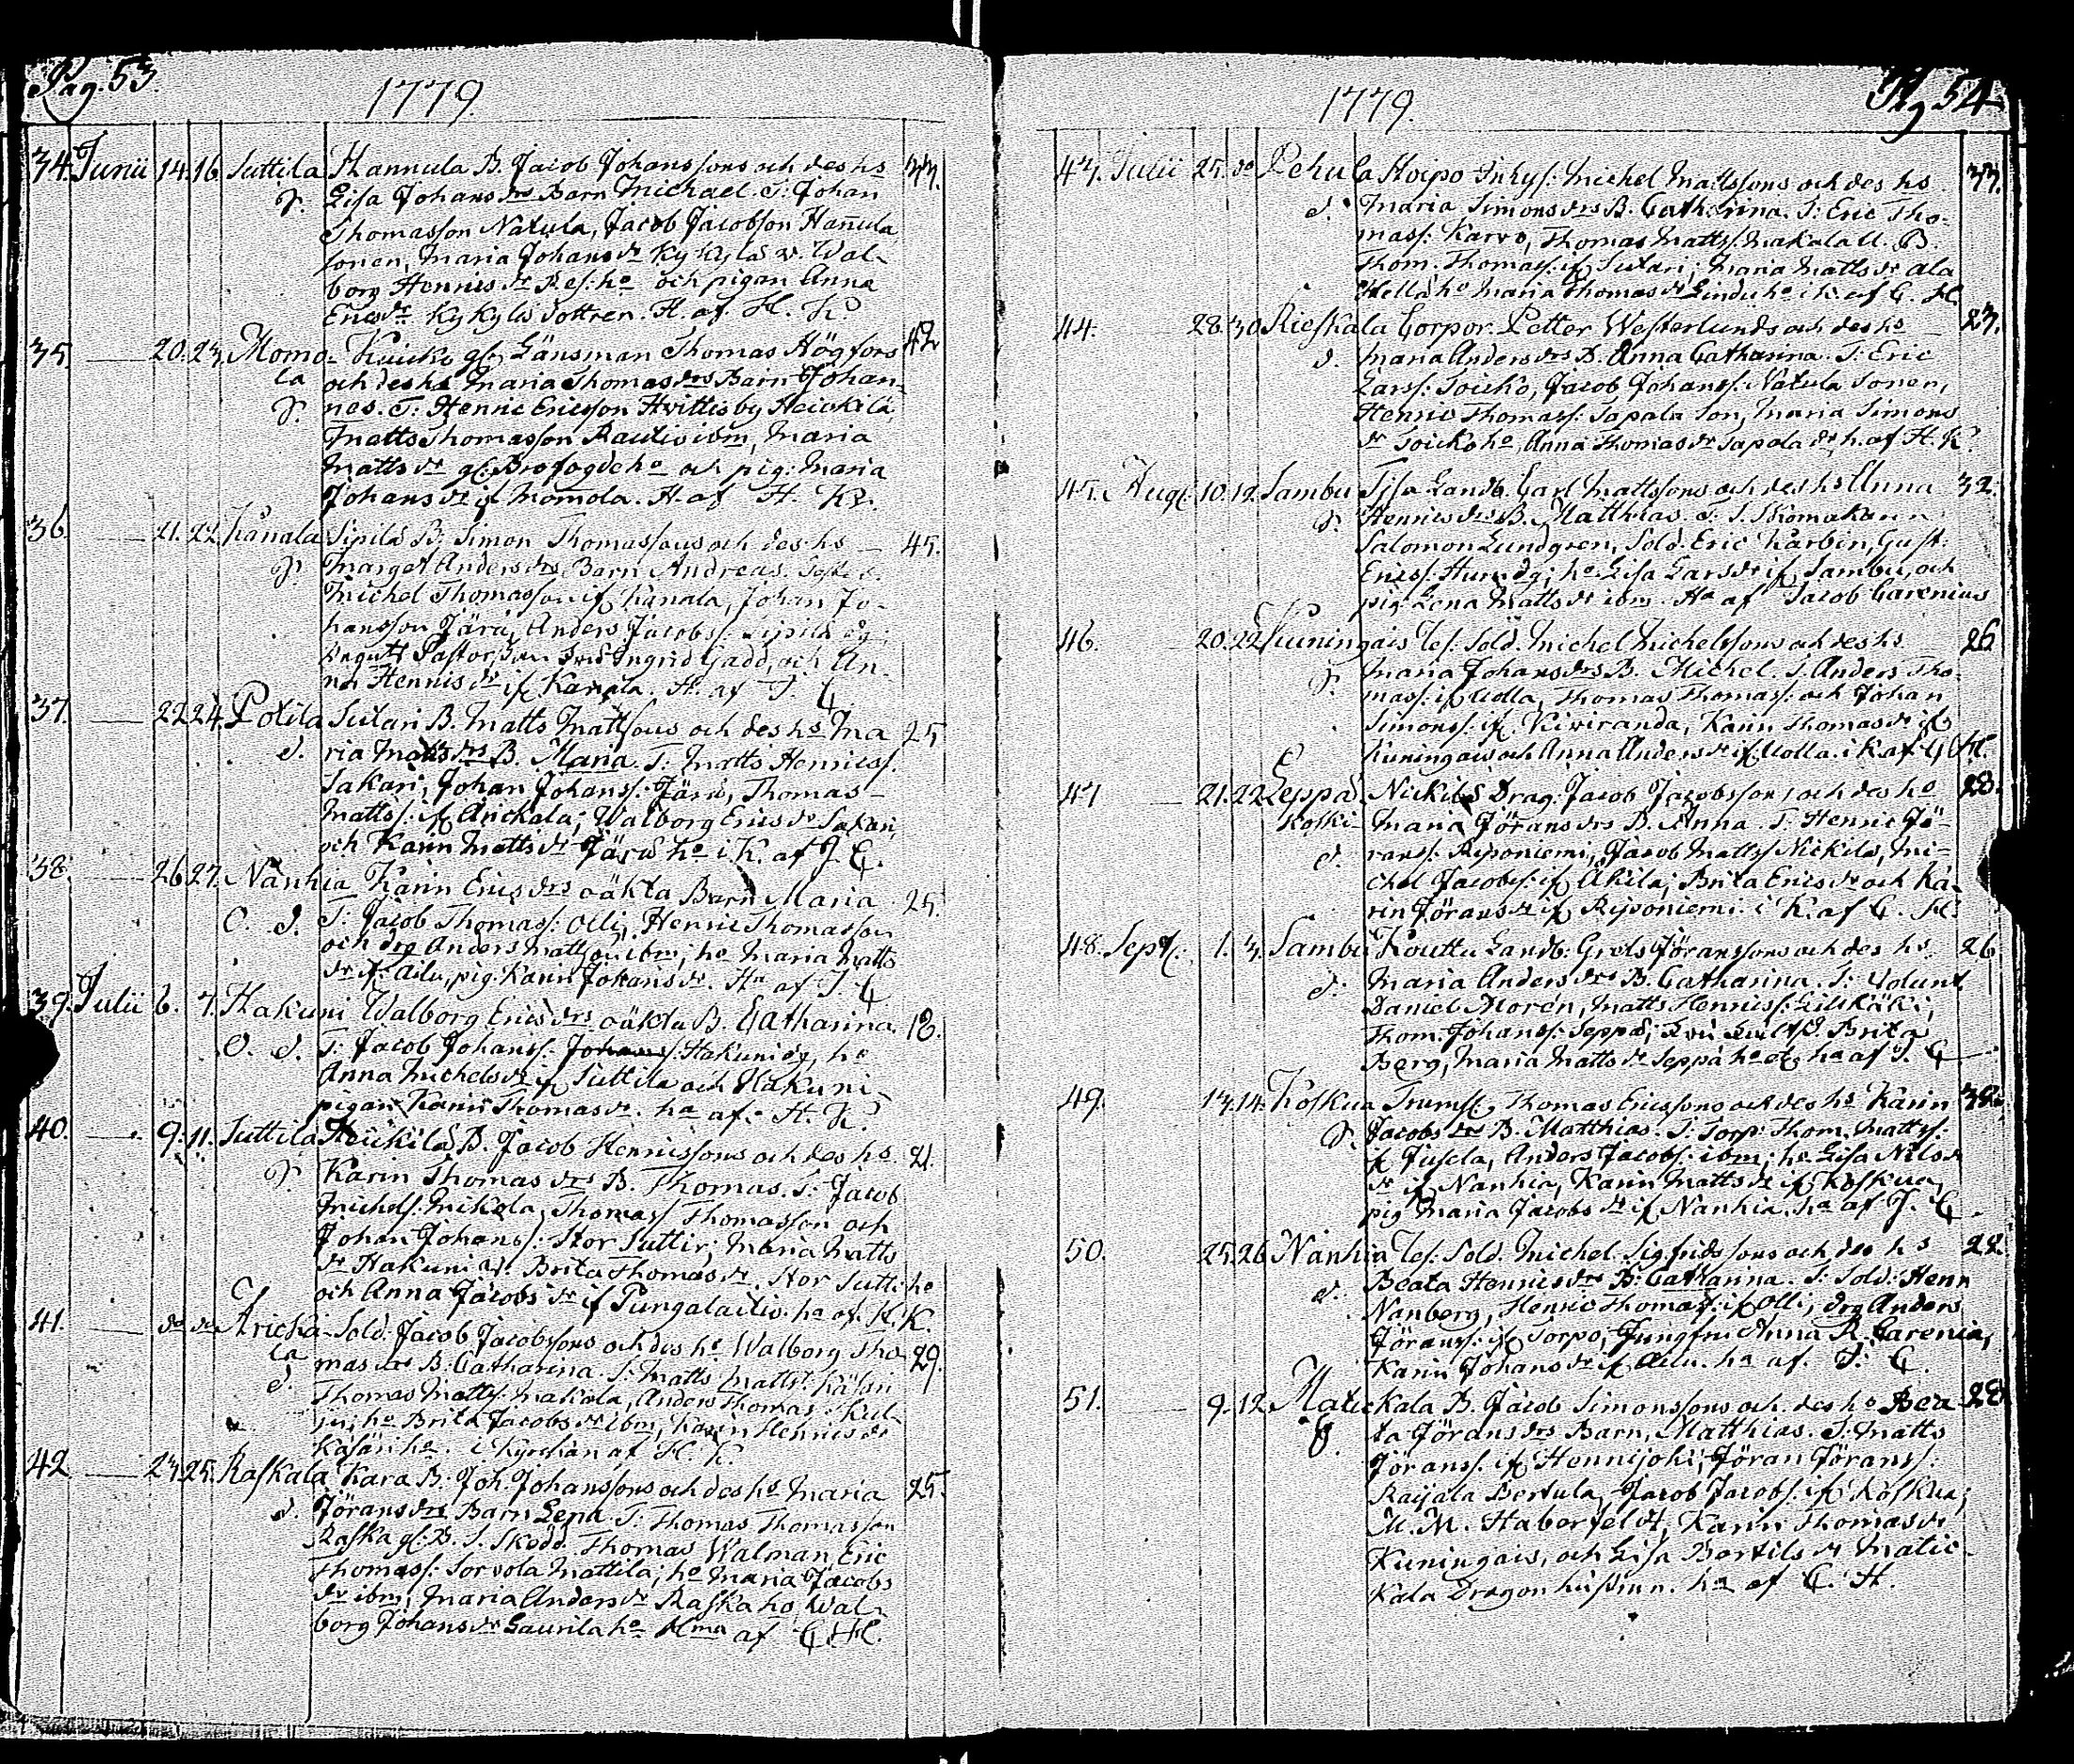 Pag. 53.
1779.
34. Junii 14. 16. Suttila Hannula B. Jacob Johanssons och des hs 33.
S. Lisa Johans drs Barn Michael. T: Johan
Thomasson Natula, Jacob Jacobson Hanula
sonen, Maria Johans dr Kykyläs v. Wal-
borg Henrics dr Res: ho och pigan Anna
Erics dr Kykylis dottren. H. af H. K.
35. — 20. 23. Momo- Länsman Thomas Högfors 42
la och des hs Maria Thomas drs Barn Johan-
S. nes. T: Henric Ericsson Hvittisby Heickilä,
Matts Thomasson Rautio ibm, Maria
Matts dr gl: Brofogde ho och pig: Maria
Johans dr if Momola. H. af H. K.
36. — 21. 22. Kanala Sipilä B: Simon Thomassons och des hs — 45.
S. Marget Anders drs Barn Andreas.
Michel Thomasson if Kanala, Johan Jo-
hansson Järä, Anders Jacobss: Sipilä dg;
Ingrid Gadd, och An-
na Henrics dr if Kanala. H. af J. C
37. — 22. 24. Potila Sutari B. Matts Mattsons och des hs Ma 25
d. ria Matts drs B. Maria. T: Matts Henricss.
Sakari, Johan Johanss: Järä, Thomas
Mattss: if Arickala; Walborg Erics dr Sakari,
och Karin Matts dr Järä ho i K. af J. C.
38. — 26. 27. Nanhia Karin Erics drs oäkta Barn Maria 25.
O. d. T: Jacob Thomass: Olli, Henric Thomasson
och drg Anders Mattson ibm; ho Maria Matts
dr if Adu, pig. Karin Johans dr. Ha af J. C
39. Julii 6. 7. Hakuni Walborg Erics drs oäkta B. Catharina 18.
O. d. T: Jacob Johanss. Johanss: Hakuni dg, ho
Anna Michels dr if Suttila och Hakuni
pigan Karin Thomas dr. ha af. H. K.
40. — 9. 11. Suttila Heickilä B. Jacob Henricssons och des hs 21.
S. Karin Thomas drs B. Thomas. T: Jacob
Michelss: Mikola, Thomass Thomasson och
Johan Johanss: Stor Suttir; Maria Matts
dr Hakuni Brita Thomas dr. Stor Sutti ho
och Anna Jacobs dr if Pungalaitio. ha af. H. K.
41. — do do Aricka- Sold: Jacob Jacobssons och des hs Walborg Tho 29.
la mas drs B. Catharina. T: Matts Mattss:
d. Thomas Mattss: Makola, Anders Thomas
ho Brita Jacobs dr ibm, Karin Henrics dr
Kasari ho. i Kyrckan af H. K.
42 — 23. 25. Raskala Kara B: Joh. Johanssons och des hs Maria 25.
d. Jörans drs Barn Lena. T: Thomas Thomasson
Raska gl: B. S. Skodd. Thomas Walman, Eric
Thomass: Sorvola Mattila; ho Maria Jacobs
dr ibm, Maria Anders dr Raska ho, Wal-
borg Johans dr Laurila ho Hma af C. H.
Pag 54
1779.
43. Julii 25. do Pehula Hoipo Inhys: Michel Mattssons och des hs 33.
d. Maria Simons drs B. Catharina. T: Eric Tho-
mass: Karvo, Thomas Mattss. Makala U. B.
Thom. Thomass: if Sutari; Maria Matts dr Ala
Hella ho Maria Thomas dr Lindu ho i k. af C. H.
44. — 28. 30. Rieskala Corpor. Petter Westerlunds och des hs 23.
d. Maria Anders drs B. Anna Catharina. T: Eric
Larss: Soicko, Jacob Johanss: Natula Sonen,
Henric Thomass: Sapala Son, Maria Simons
dr Soicko ho, Anna Thomas dr Sapala dr. h. af H. K.
45. Aug. 10. 12. Sambu Landb. Carl Mattssons och des hs Anna 32.
S. Henrics drs B. Matthias. T: S. Skomakaren
Salomon Lundgren, Sold. Eric Karbin, Gust:
Ericss: Hurn dg; ho Lisa Lars dr if Sambu, och
pig Lena Matts dr ibm. Ha af Jacob Carenius
46. — 20. 22. Kuningais Sold. Michel Michelssons och des hs 26
S. Maria Johans drs B. Michel. T. Anders Tho-
mass: if Uolla, Thomas Thomass: och Johan
Simonss: if Kiviranda, Karin Thomas dr if
Kuningais och Anna Anders dr if Uolla. i K. af C. H.
47 — 21. 22. Leppä- Nickilä Drag. Jacob Jacobsson, och des ho 28.
koski- Maria Jörans drs B. Anna. T: Henric Jö-
d. ranss: Riponiemi, Jacob Mattss Nickilä, Mi-
chel Jacobss: if Äkilä; Brita Erics dr och Ka-
rin Jörans dr if Riponiemi. i K. af C. H.
48. Sept. 1. 3. Sambu Kouttu Landb: Grels Jöranssons och des hs 26
d. Maria Anders drs B. Catharina. T: Volunt
Daniel Morén, Matts Henricss:
Thom. Johanss: Seppä; Brita
Berg, Maria Matts dr Seppä ho ha af J. C
49. 13. 14. Koskua Thomas Ericssons och des hs Karin 38.
S. Jacobs drs B. Matthias. T: Torp: Thom. Mattss:
if Jusela, Anders Jacobss: ibm; ho Lisa Nils
dr if Nanhia, Karin Matts dr if Koskua,
pig Maria Jacobs dr if Nanhia. ha af J. C
50. 25. 26. Nanhia Sold. Michel Sigfridssons och des hs 28.
d. Beata Henrics drs B. Catharina. T: Sold: Henr
Nanberg, Henric Thomass: if Olli; drg Anders
Jöranss: if Torpo; Jungfru Anna R. Carenia,
Karin Johans dr if Adu. ha af. J. C.
51. — 9. 12. Matickala B. Jacob Simonssons och des hs Bea 28
ta Jörans drs Barn, Matthias. T: Matts
Jöranss. if Hennijoki, Jöran Jöranss:
Raijala Bertula, Jacob Jacobs. if Koskua;
M. M. Haberfelt, Karin Thomas dr
Kuningais, och Lisa Bertils dr Matic-
kala Dragon ha af C. H.